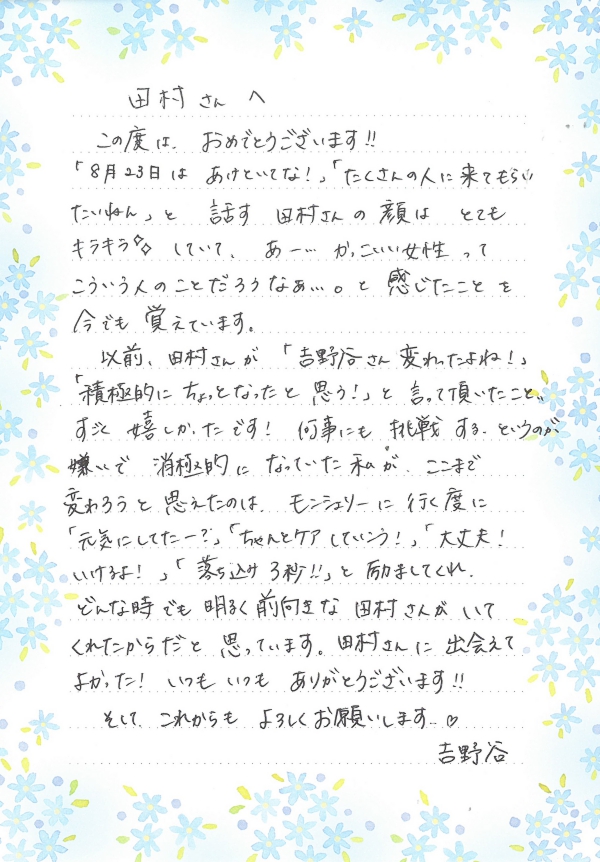 田村さんへ
この度は、おめでとうございます!!
「8月23日は あけといてな!」「たくさんの人に来てもらい
たいねん」と 話す 田村さんの 顔は とても
キラキラ していて、あー… かっこいい女性 って
こういう人のことだろうなぁ…。と 感じたことを
今でも 覚えています。
以前、田村さんが 「吉野谷さん 変わったよね!」
「積極的に ちょっとなったと 思う!」と 言って頂いたこと、
すごく 嬉しかったです! 何事にも 挑戦 する、というのが
嫌いで 消極的に なっていた 私が、ここまで
変わろうと 思えたのは、モンシェリーに 行く度に
「元気にしてたー?」「ちゃんとケアしていこう!」「大丈夫!
いけるよ!」「落ち込み 3秒!!」と 励ましてくれ、
どんな時でも 明るく 前向きな 田村さんが いて
くれたからだと 思っています。田村さんに 出会えて
よかった! いつも いつも ありがとうございます!!
そして、これからも よろしくお願いします…♡
吉野谷